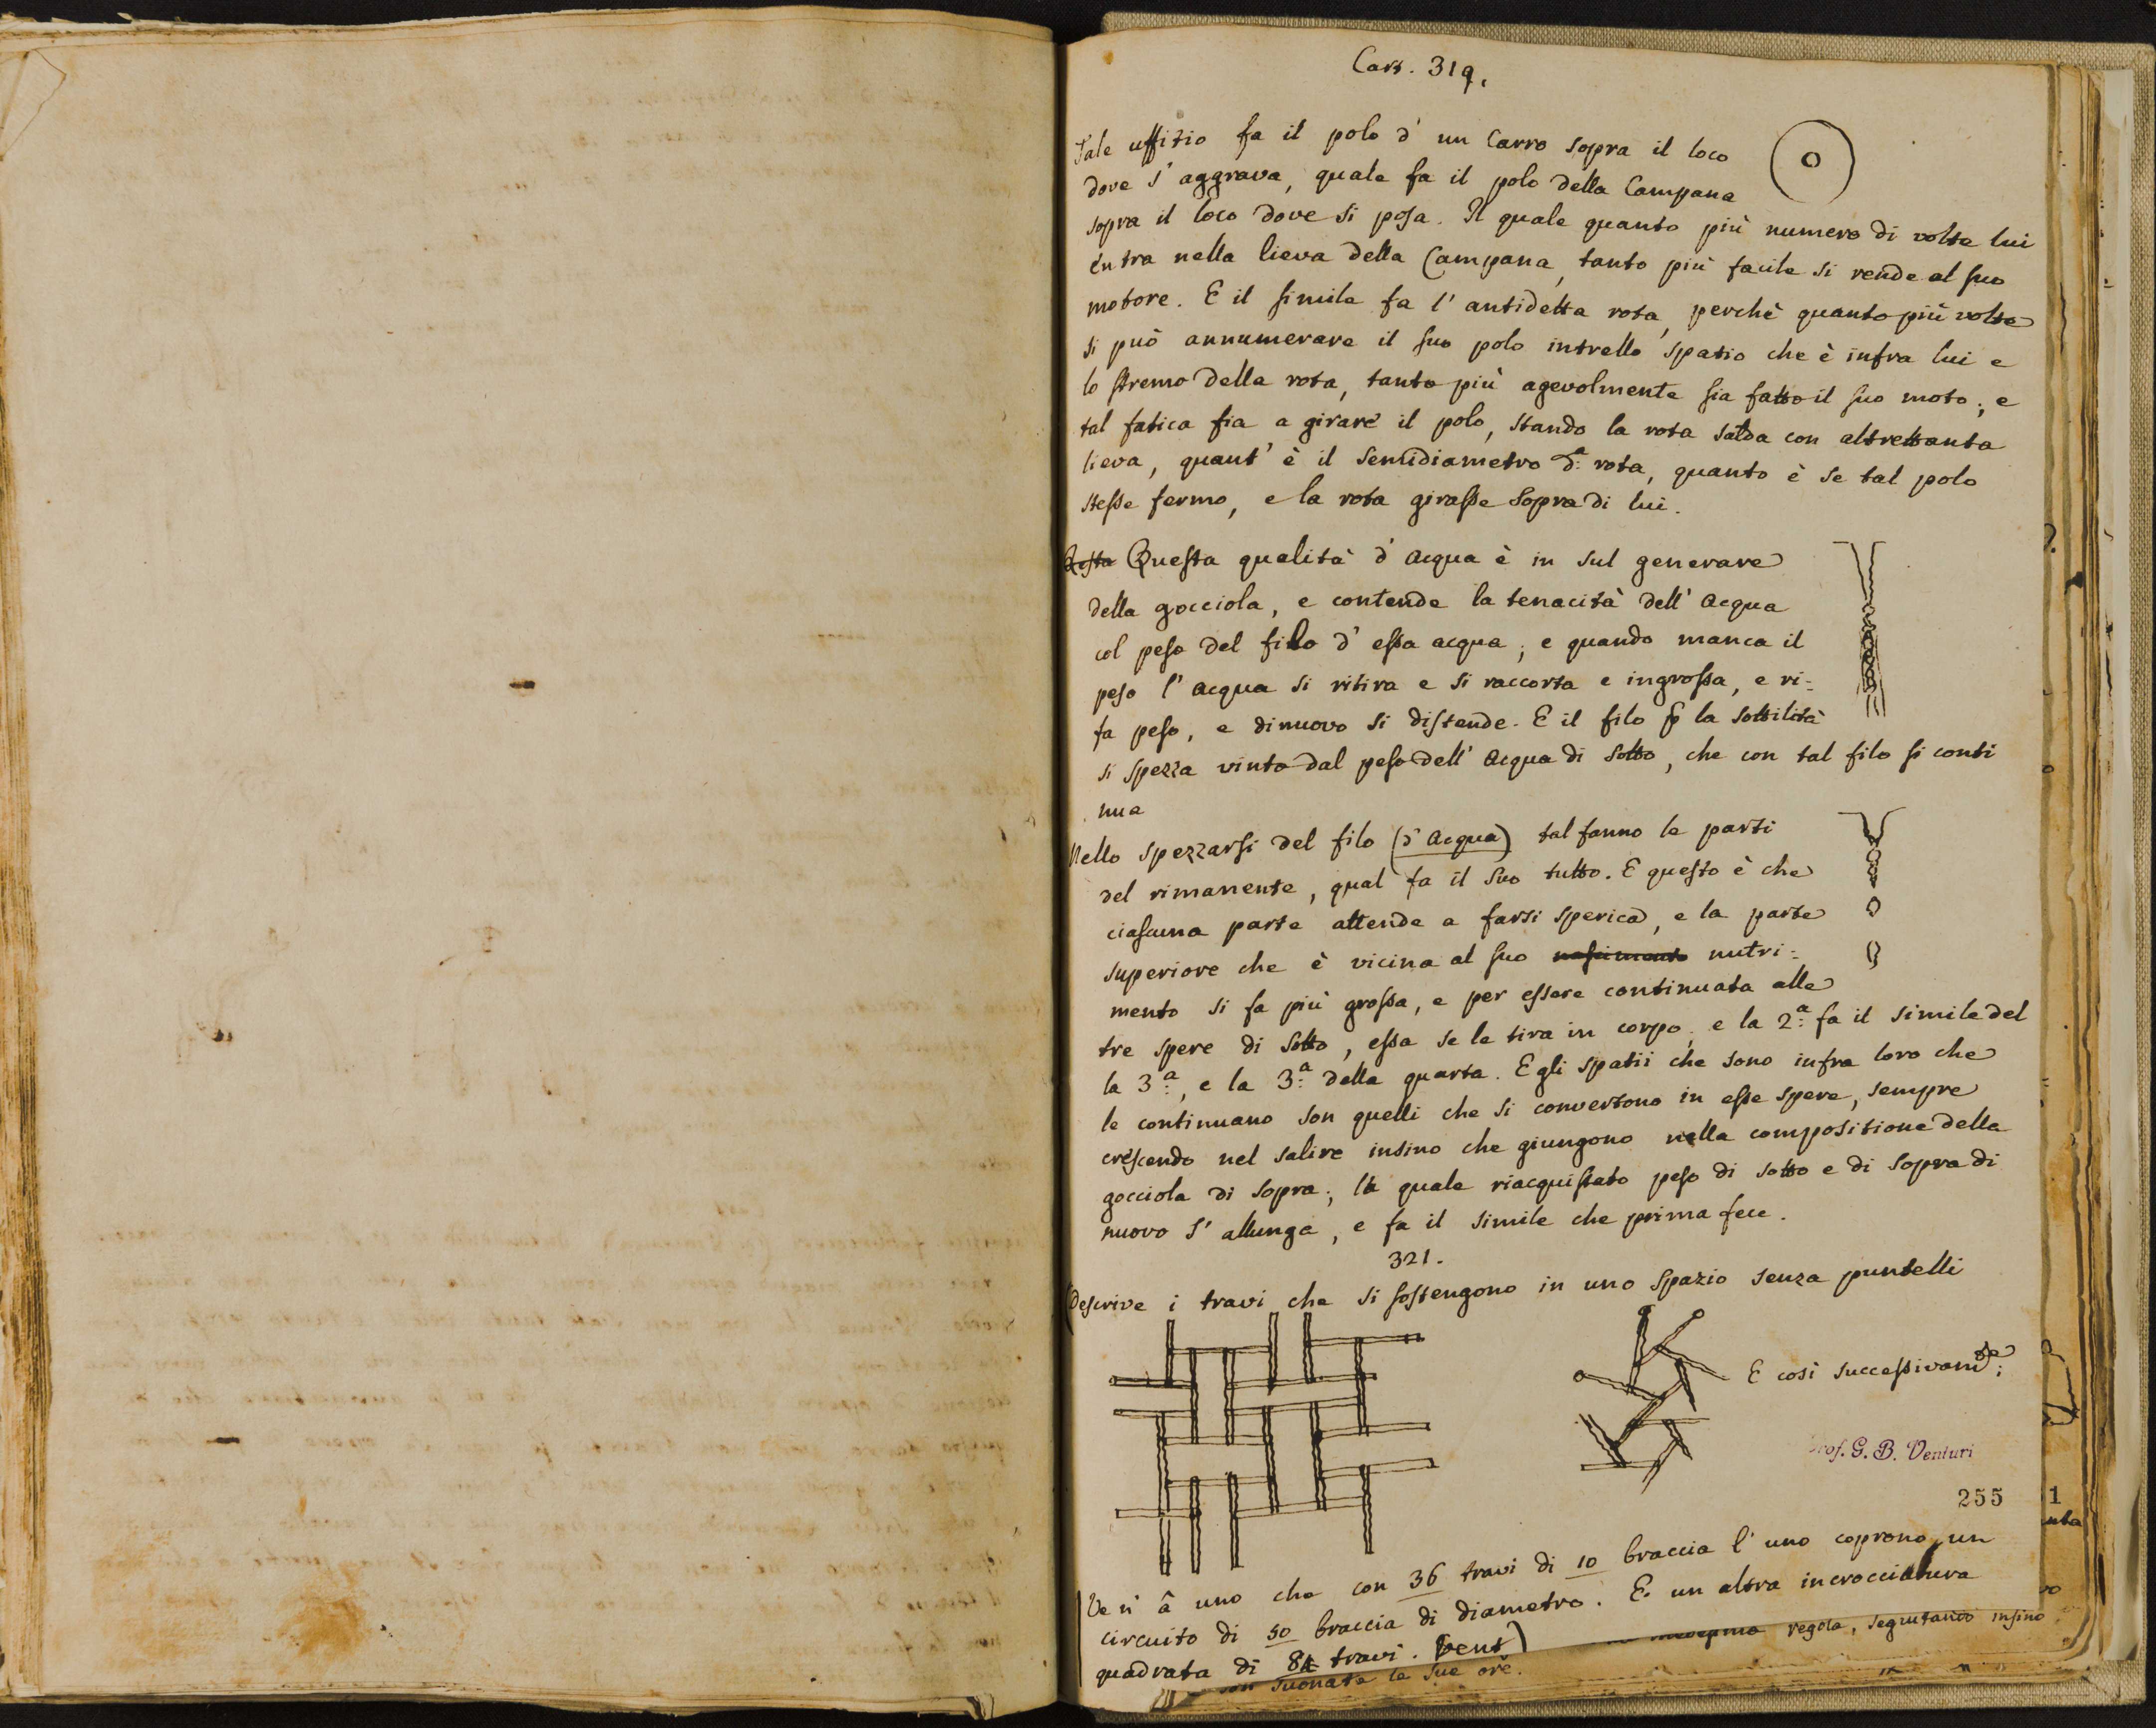 Cart. 319.
Tale uffitio fa il polo d' un Carro sopra il loco
dove s' aggrava, quale fa il polo della Campana
sopra il loco dove si posa. Il quale quanto più numero di volte lui
entra nella lieva della Campana, tanto più facile si rende al suo
motore. E il simile fa l' antidetta rota, perchè quanto più volte
si può annumerare il suo polo intrello spatio che è infra lui e
lo stremo della rota, tanto più agevolmente fia fatto il suo moto; e
tal fatica fia a girare il polo, stando la rota salda con altrettanta
lieva, quant' è il semidiametro d.a rota, quanto è se tal polo
stesse fermo, e la rota girasse sopra di lui.
Questa Questa qualità d' acqua è in sul generare
della gocciola, e contende la tenacità dell' acqua
col peso del filo d' essa acqua; e quando manca il
peso l' acqua si ritira e si raccorta e ingrossa, e ri-
fa peso, e di nuovo si distende. E il filo p la sottilità
si spezza vinto dal peso dell' acqua di sotto, che con tal filo si conti
nua
Nello spezzarsi del filo (d' acqua) tal fanno le parti
del rimanente, qual fa il suo tutto. E questo è che
ciascuna parte attende a farsi sperica, e la parte
superiore che è vicina al suo nascimento nutri-
mento si fa più grossa, e per essere continuata alle
tre spere di sotto, essa se le tira in corpo; e la 2.a fa il simile del
la 3.a, e la 3.a della quarta. E gli spatii che sono infra loro che
le continuano son quelli che si convertono in esse spere, sempre
crescendo nel salire insino che giungono nella compositione della
gocciola di sopra; la quale riacquistato peso di sotto e di sopra di
nuovo s' allunga, e fa il simile che prima fece.
321.
(Descrive i travi che si sostengono in uno spazio senza puntelli
E così successivam.te;
Prof. G. B. Venturi
255
1
Ve n' à uno che con 36 travi di 10 braccia l' uno coprono un
circuito di 50 braccia di diametro. E un altra incrocciatura
quadrata di 84 travi. Vent)
regola, seguitando insino
son suonate le sue ore.